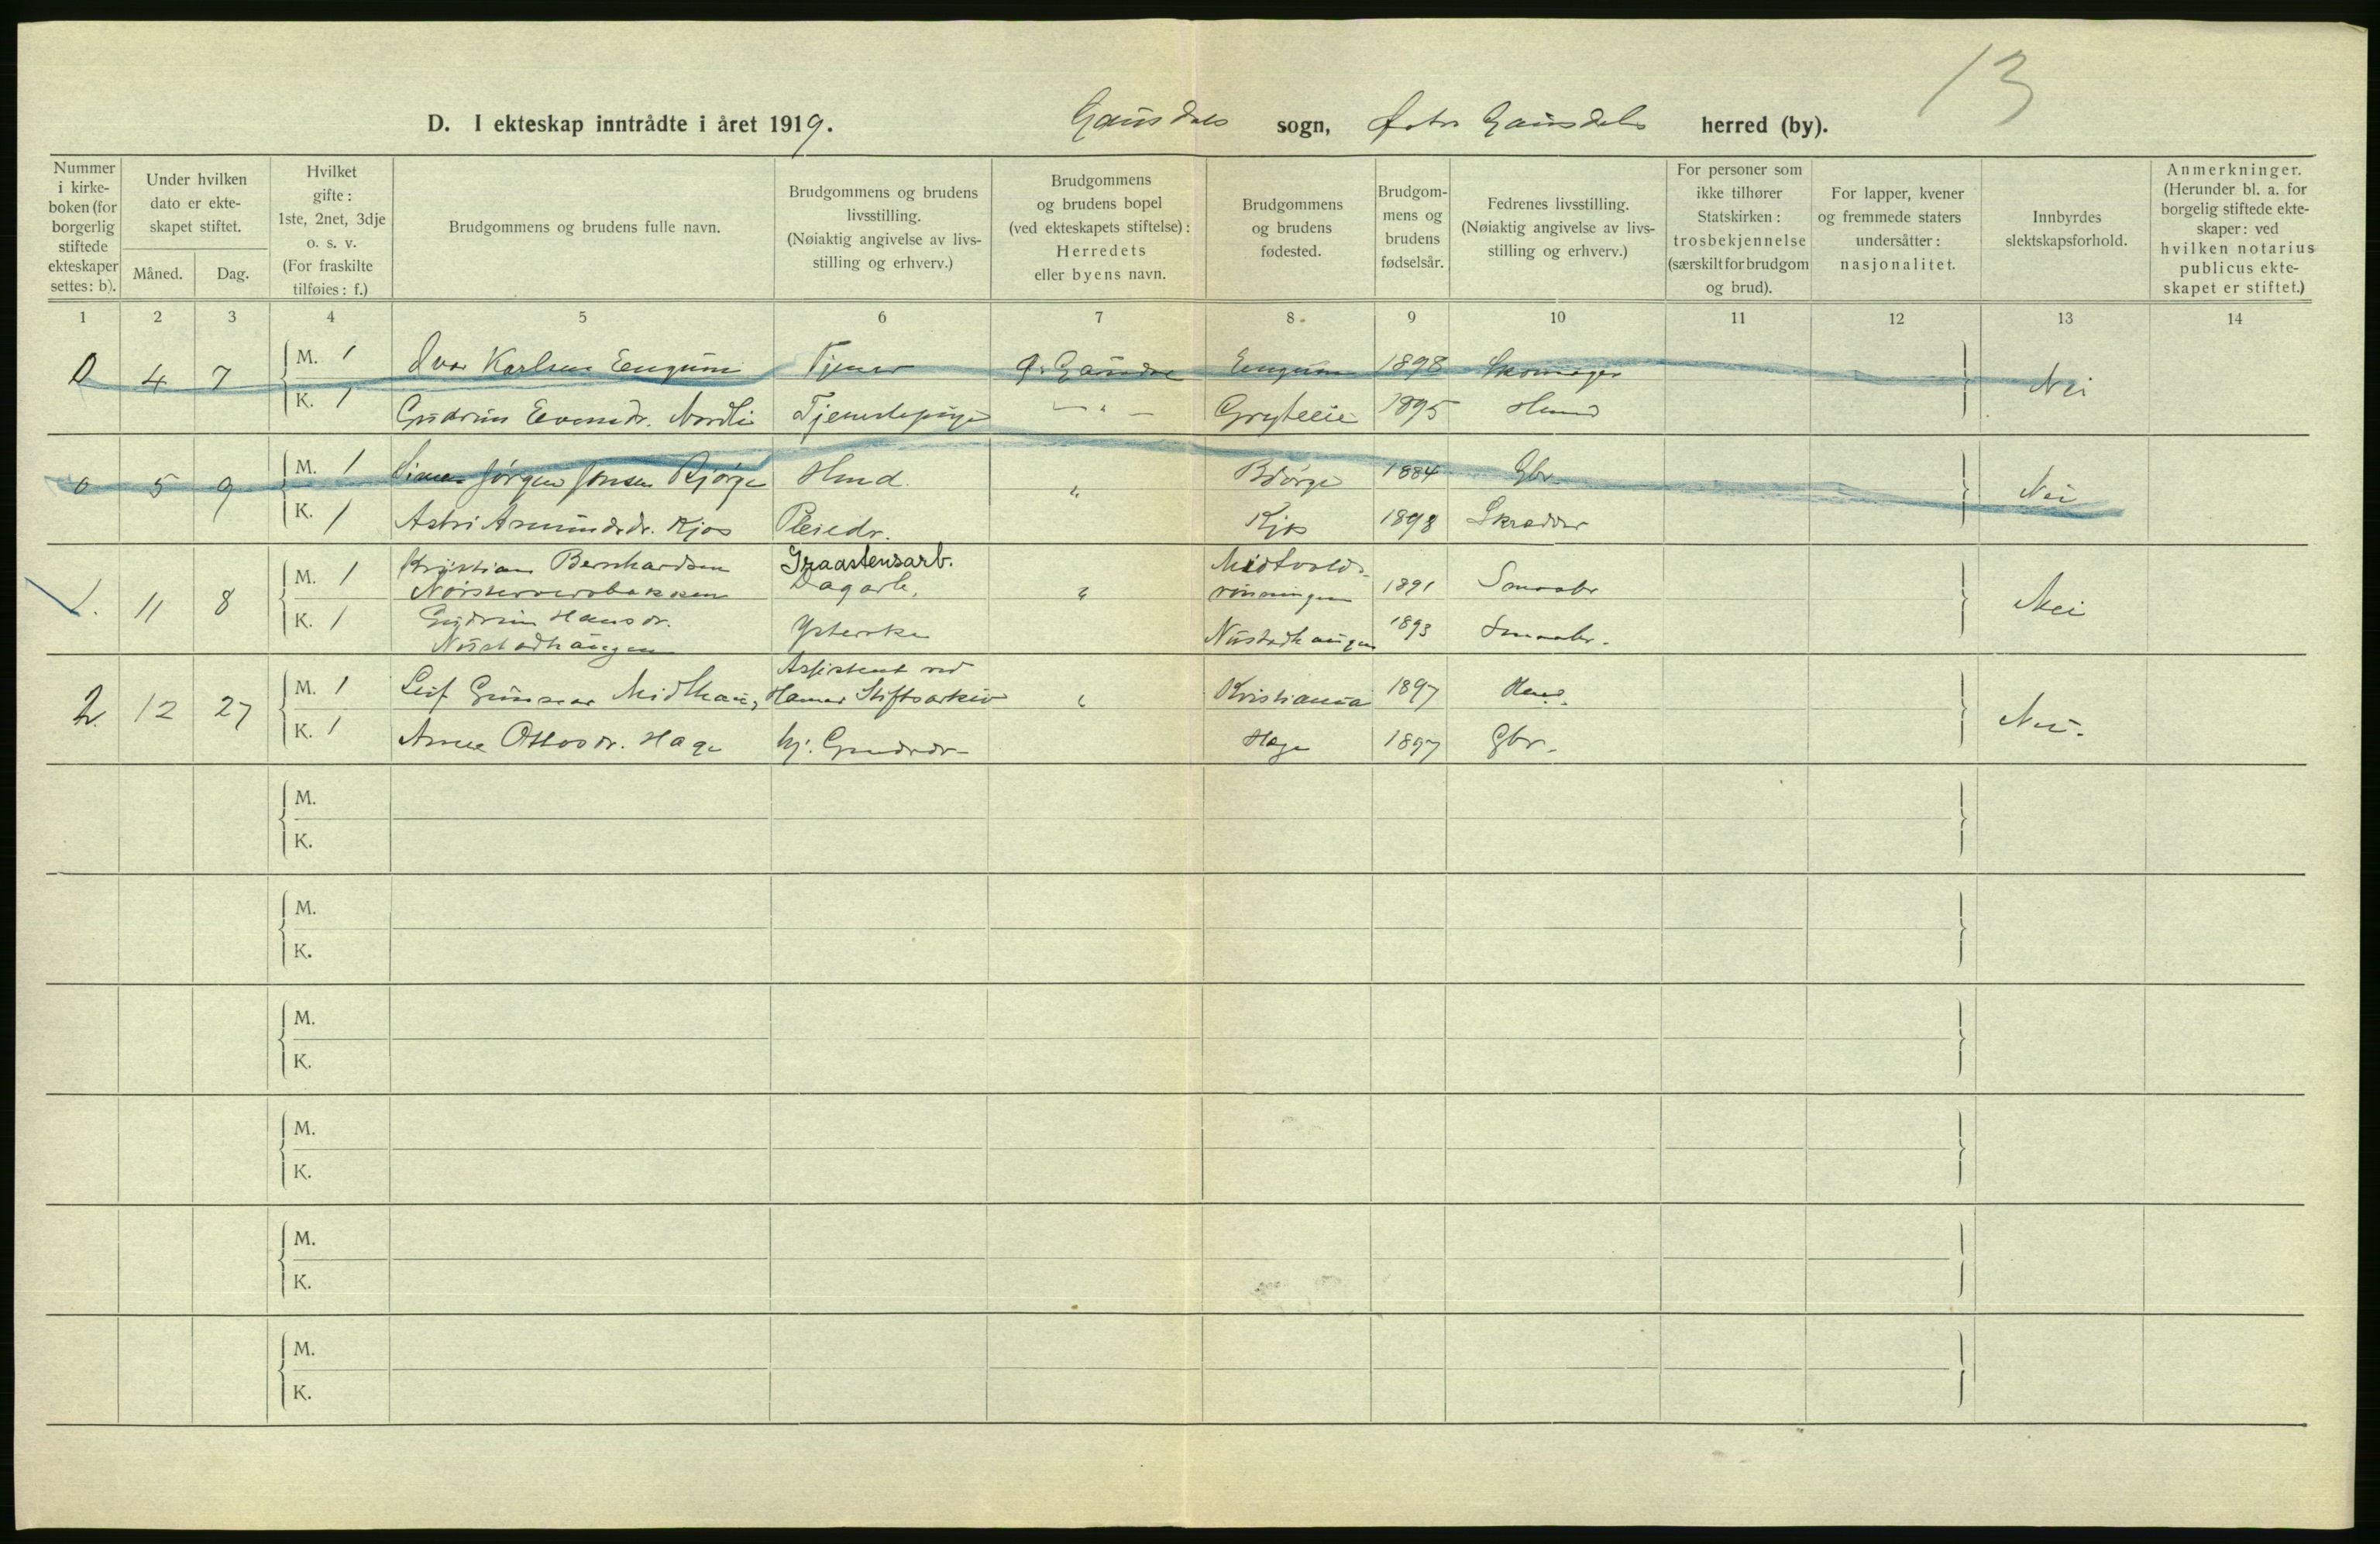 13
D. I ekteskap inntrådte i året 1919. Gausdals sogn, Østre Gausdals herred (by).
Nummer i kirke-boken (for borgerlig stiftede ekteskaper settes: b).
Under hvilken dato er ekte-skapet stiftet.
Måned. Dag.
Hvilket gifte: 1ste, 2net, 3dje o. s. v. (For fraskilte tilføies: f.)
Brudgommens og brudens fulle navn.
Brudgommens og brudens livsstilling. (Nøiaktig angivelse av livs-stilling og erhverv.)
Brudgommens og brudens bopel (ved ekteskapets stiftelse): Herredets eller byens navn.
Brudgommens og brudens fødested.
Brudgom-mens og brudens fødselsår.
Fedrenes livsstilling. (Nøiaktig angivelse av livs-stilling og erhverv.)
For personer som ikke tilhører Statskirken: trosbekjennelse (særskilt for brudgom og brud).
For lapper, kvener og fremmede staters undersåtter: nasjonalitet.
Innbyrdes slektskapsforhold.
Anmerkninger. (Herunder bl. a. for borgelig stiftede ekte-skaper: ved hvilken notarius publicus ekte-skapet er stiftet.)
1 2 3 4 5 6 7 8 9 10 11 12 13 14
0 4 7 M. 1 Ivar Karlsen Engum Tjener Ø. Gausdal Engum 1898 Skomager Nei
K. 1 Gudrun Evensdr. Nordli Tjenestepige — " — 1895 Hmd
0 5 9 M. 1 Simen Jørgen Jonsen Bjørge Hmd. " Bjørge 1884 Gbr. Nei
K. 1 Astri Amundsdr. Kjos Pleiedr. Kjos 1898 Skrædder
1. 11 8 M. 1 Kristian Bernhardsen Graastensarb. Dagarb. " Midtvolds-rønningen 1891 Smaabr Nei
K. 1 Gudrun Hansdr. Nustadhaugen Ysterske Nustadhaugen 1893 Smaabr.
2. 12 27 M. 1 Leif Gunnar Midthaug Assistent ved Hamar Stiftsarkiv " Kristiania 1897 Nei.
K. 1 Anne Ottosdr. Hage hj. Gmdrdr. Hage 1897 Gbr.
M.
K.
M.
K.
M.
K.
M.
K.
M.
K.
M.
K.